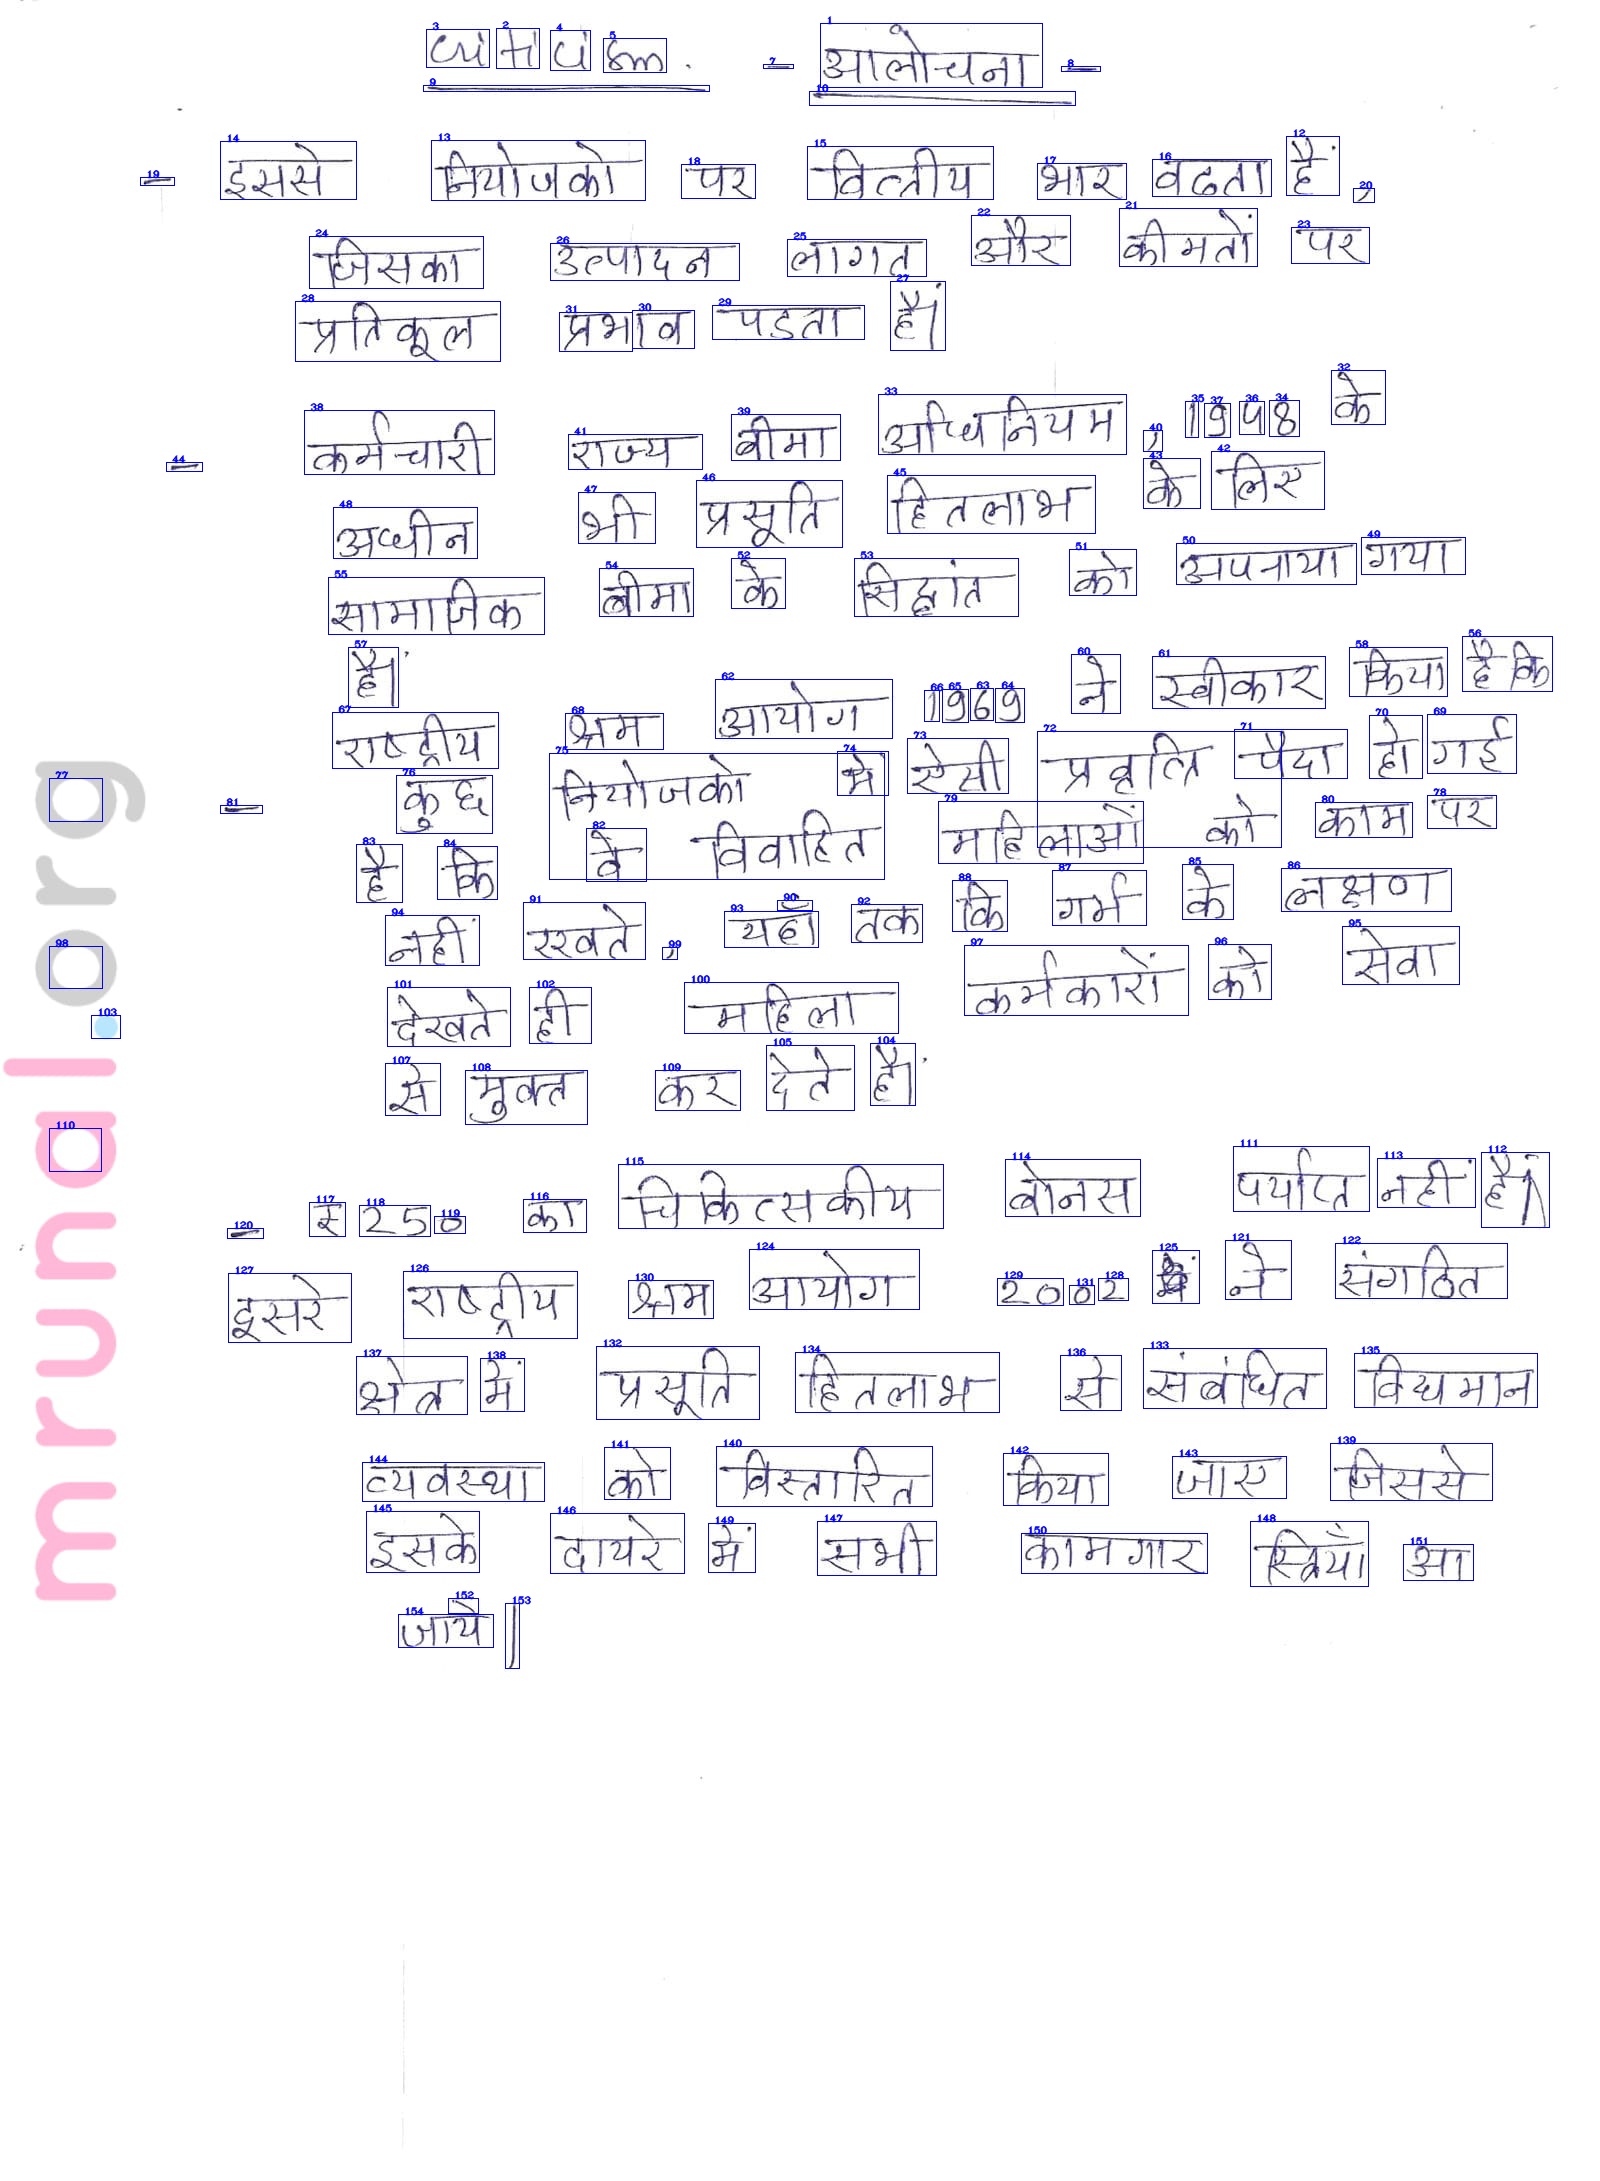 criticism. - आलोचना -
- इससे नियोजको पर वित्तीय भार बढता हैं,
जिसका उत्पादन लागत और कीमतों पर
प्रतिकूल प्रभाव पडता हैं।
- कर्मचारी राज्य बीमा अधिनियम, 1948 के
अधीन भी प्रसूति हितलाभ के लिए
सामाजिक बीमा के सिद्वांत को अपनाया गया
हैं।
राष्ट्रीय श्रम आयोग 1969 ने स्वीकार किया है कि
- कुछ नियोजको मे ऐसी प्रवृत्ति पैदा हो गई
है कि वे विवाहित महिलाओं को काम पर
नहीं रखते, यहाँ तक कि गर्भ के लक्षण
देखते ही महिला कर्मकारों को सेवा
से मुक्त कर देते हैं।
- रु 250 का चिकित्सकीय बोनस पर्याप्त नहीं हैं।
दूसरे राष्ट्रीय श्रम आयोग 2002 ने संगठित
क्षेत्र में प्रसूति हितलाभ से संबंधित विद्यमान
व्यवस्था को विस्तारित किया जाए जिससे
इसके दायरे में सभी कामगार स्त्रियाँ आ
जाये।
mrunal.org